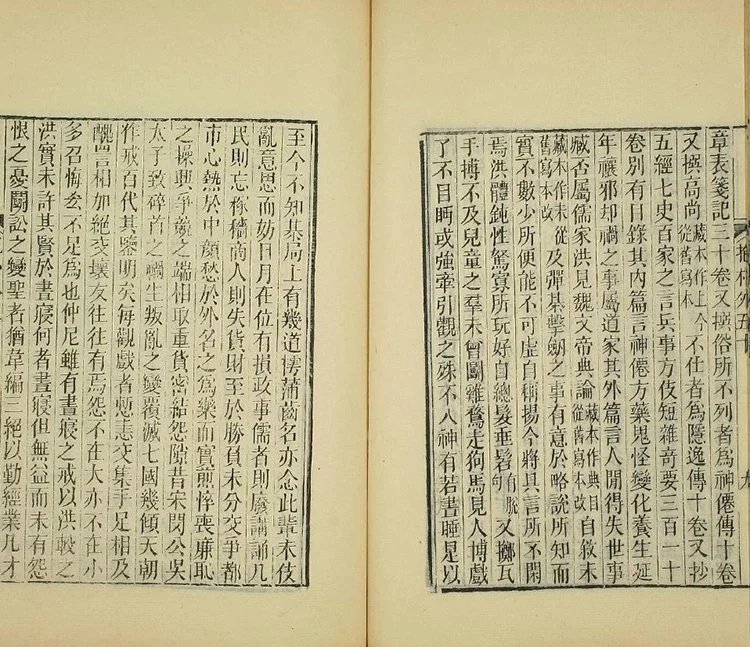 章表箋記三十卷又撰俗所不列者爲神僊傳十卷
又撰高尚藏本作上今從舊寫本不仕者爲隱逸傳十卷又抄
五經七史百家之言兵事方伎短雜奇要三百一十
卷別有目錄其内篇言神僊方藥鬼怪變化養生延
年禳邪却禍之事屬道家其外篇言人閒得失世事
臧否屬儒家洪見魏文帝典論藏本作典目從舊寫本改自敘未
藏本作末從舊寫本改及彈棊擊劒之事有意於略說所知而
實不數少所便能不可虛自稱揚今將具言所不閑
焉洪體鈍性駑寡所玩好自總髮垂髫有脫句又擲瓦
手搏不及兒童之羣未曾鬭雞鶩走狗馬見人博戲
了不目眄或強牽引觀之殊不入神有若晝睡是以
至今不知棊局上有幾道樗蒲齒名亦念此輩末伎
亂意思而妨日月在位有損政事儒者則廢講誦凡
民則忘稼穡商人則失貨財至於勝負未分交爭都
市心熱於中顏愁於外名之爲樂而實煎悴喪廉恥
之操興爭競之端相取重貨密結怨隙昔宋閔公吳
太子致碎首之禍生叛亂之變覆滅七國幾傾天朝
作戒百代其鑒明矣每觀戲者慙恚交集手足相及
醜詈相加絕交壞友往往有焉怨不在大亦不在小
多召悔吝不足爲也仲尼雖有晝寢之戒以洪較之
洪實未許其賢於晝寢何者晝寢但無益而未有怨
恨之憂鬭訟之變聖者猶韋編三絕以勤經業凡才